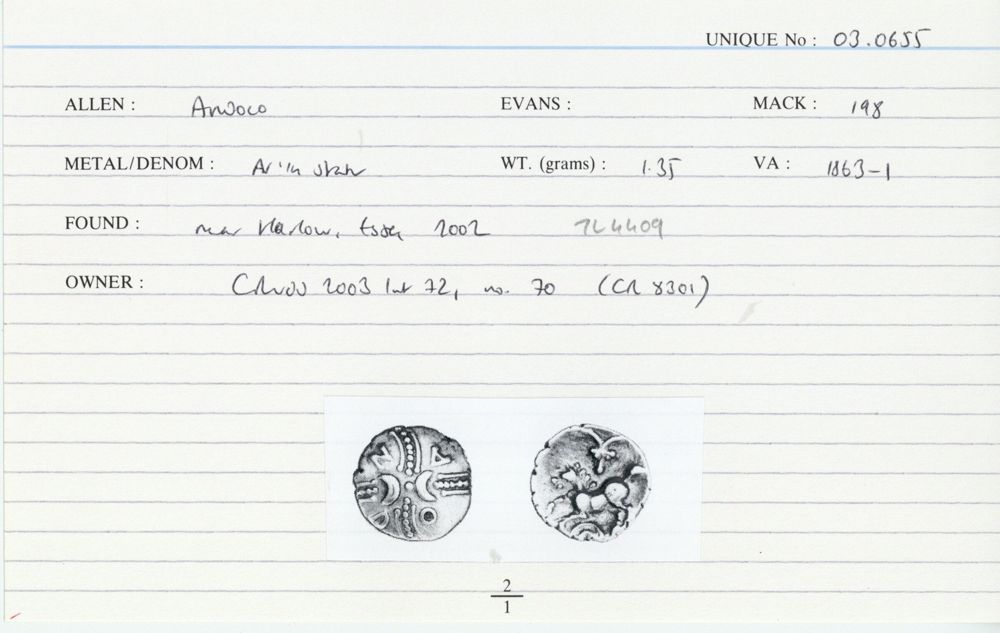 UNIQUE No : 03.0655
ALLEN : Andoco EVANS : MACK : 198
METAL/DENOM : AV ¼ stater WT. (grams) : 1.35 VA : 1863-1
FOUND : near Harlow, Essex 2002 TL4409
OWNER : 2003 List 72, no. 70 (CR 8301)
2
1